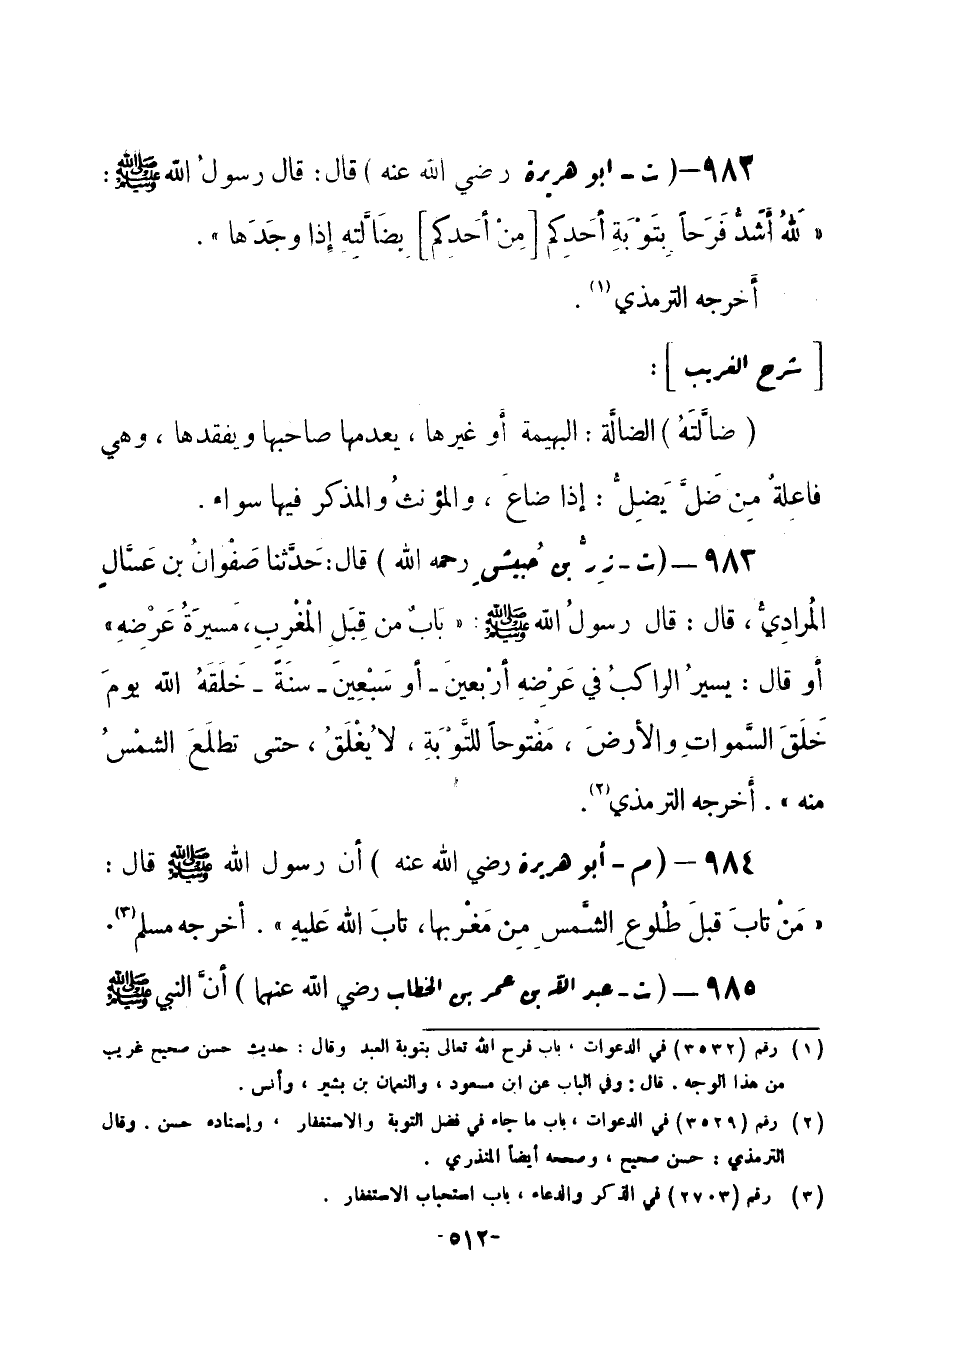 ٩٨٢ – ( ت - أبو هريرة رضي الله عنه ) قال : قال رسولُ الله ﷺ :
« لَلَّهُ أَشَدُّ فَرَحاً بِتَوْبَةِ أَحَدِكم [ مِنْ أَحَدِكم ] بِضَالَّتِهِ إِذا وجَدَها » .
أَخرجه الترمذي (١) .
[ شرح الغريب ] :
( ضالَّتَهُ ) الضالَّة : البهيمة أو غيرها ، يعدمها صاحبها ويفقدها ، وهي
فاعِلةٌ مِن ضَلَّ يَضِلُّ : إذا ضاعَ ، والمؤنثُ والمذكر فيها سواء .
٩٨٣ – ( ت - زِرُّ بن حُبيشٍ رحمه الله ) قال : حَدَّثنا صَفْوانُ بن عَسَّالٍ
المُراديُّ ، قال : قال رسولُ الله ﷺ : « بَابٌ من قِبَلِ المْغْرِبِ ، مَسيرَةُ عَرْضِهِ »
أو قال : يسيرُ الراكبُ في عَرْضِهِ أرْبعينَ - أو سَبْعِينَ - سنَةً - خَلَقَهُ الله يومَ
خَلَقَ السَّمواتِ والأرضَ ، مَفْتوحاً للتَّوْبَةِ ، لا يُغْلَقُ ، حتى تطلَعَ الشمْسُ
منه » . أَخرجه الترمذي (٢) .
٩٨٤ – ( م - أبو هريرة رضي الله عنه ) أن رسول الله ﷺ قال :
« مَنْ تابَ قبلَ طُلوعِ الشَّمسِ مِن مَغْرِبها ، تابَ الله عَليهِ » . أخرجه مسلم (٣) .
٩٨٥ – ( ت - عبد الله بن عمر بن الخطاب رضي الله عنهما ) أنَّ النبي ﷺ
(١) رقم (٣٥٣٢) في الدعوات ، باب فرح الله تعالى بتوبة العبد وقال : حديث حسن صحيح غريب
من هذا الوجه . قال : وفي الباب عن ابن مسعود ، والنعمان بن بشير ، وأنس .
(٢) رقم (٣٥٢٩) في الدعوات ، باب ما جاء في فضل التوبة والاستغفار ، وإسناده حسن . وقال
الترمذي : حسن صحيح ، وصححه أيضاً المنذري .
(٣) رقم (٢٧٠٣) في الذكر والدعاء ، باب استحباب الاستغفار .
-٥١٢-